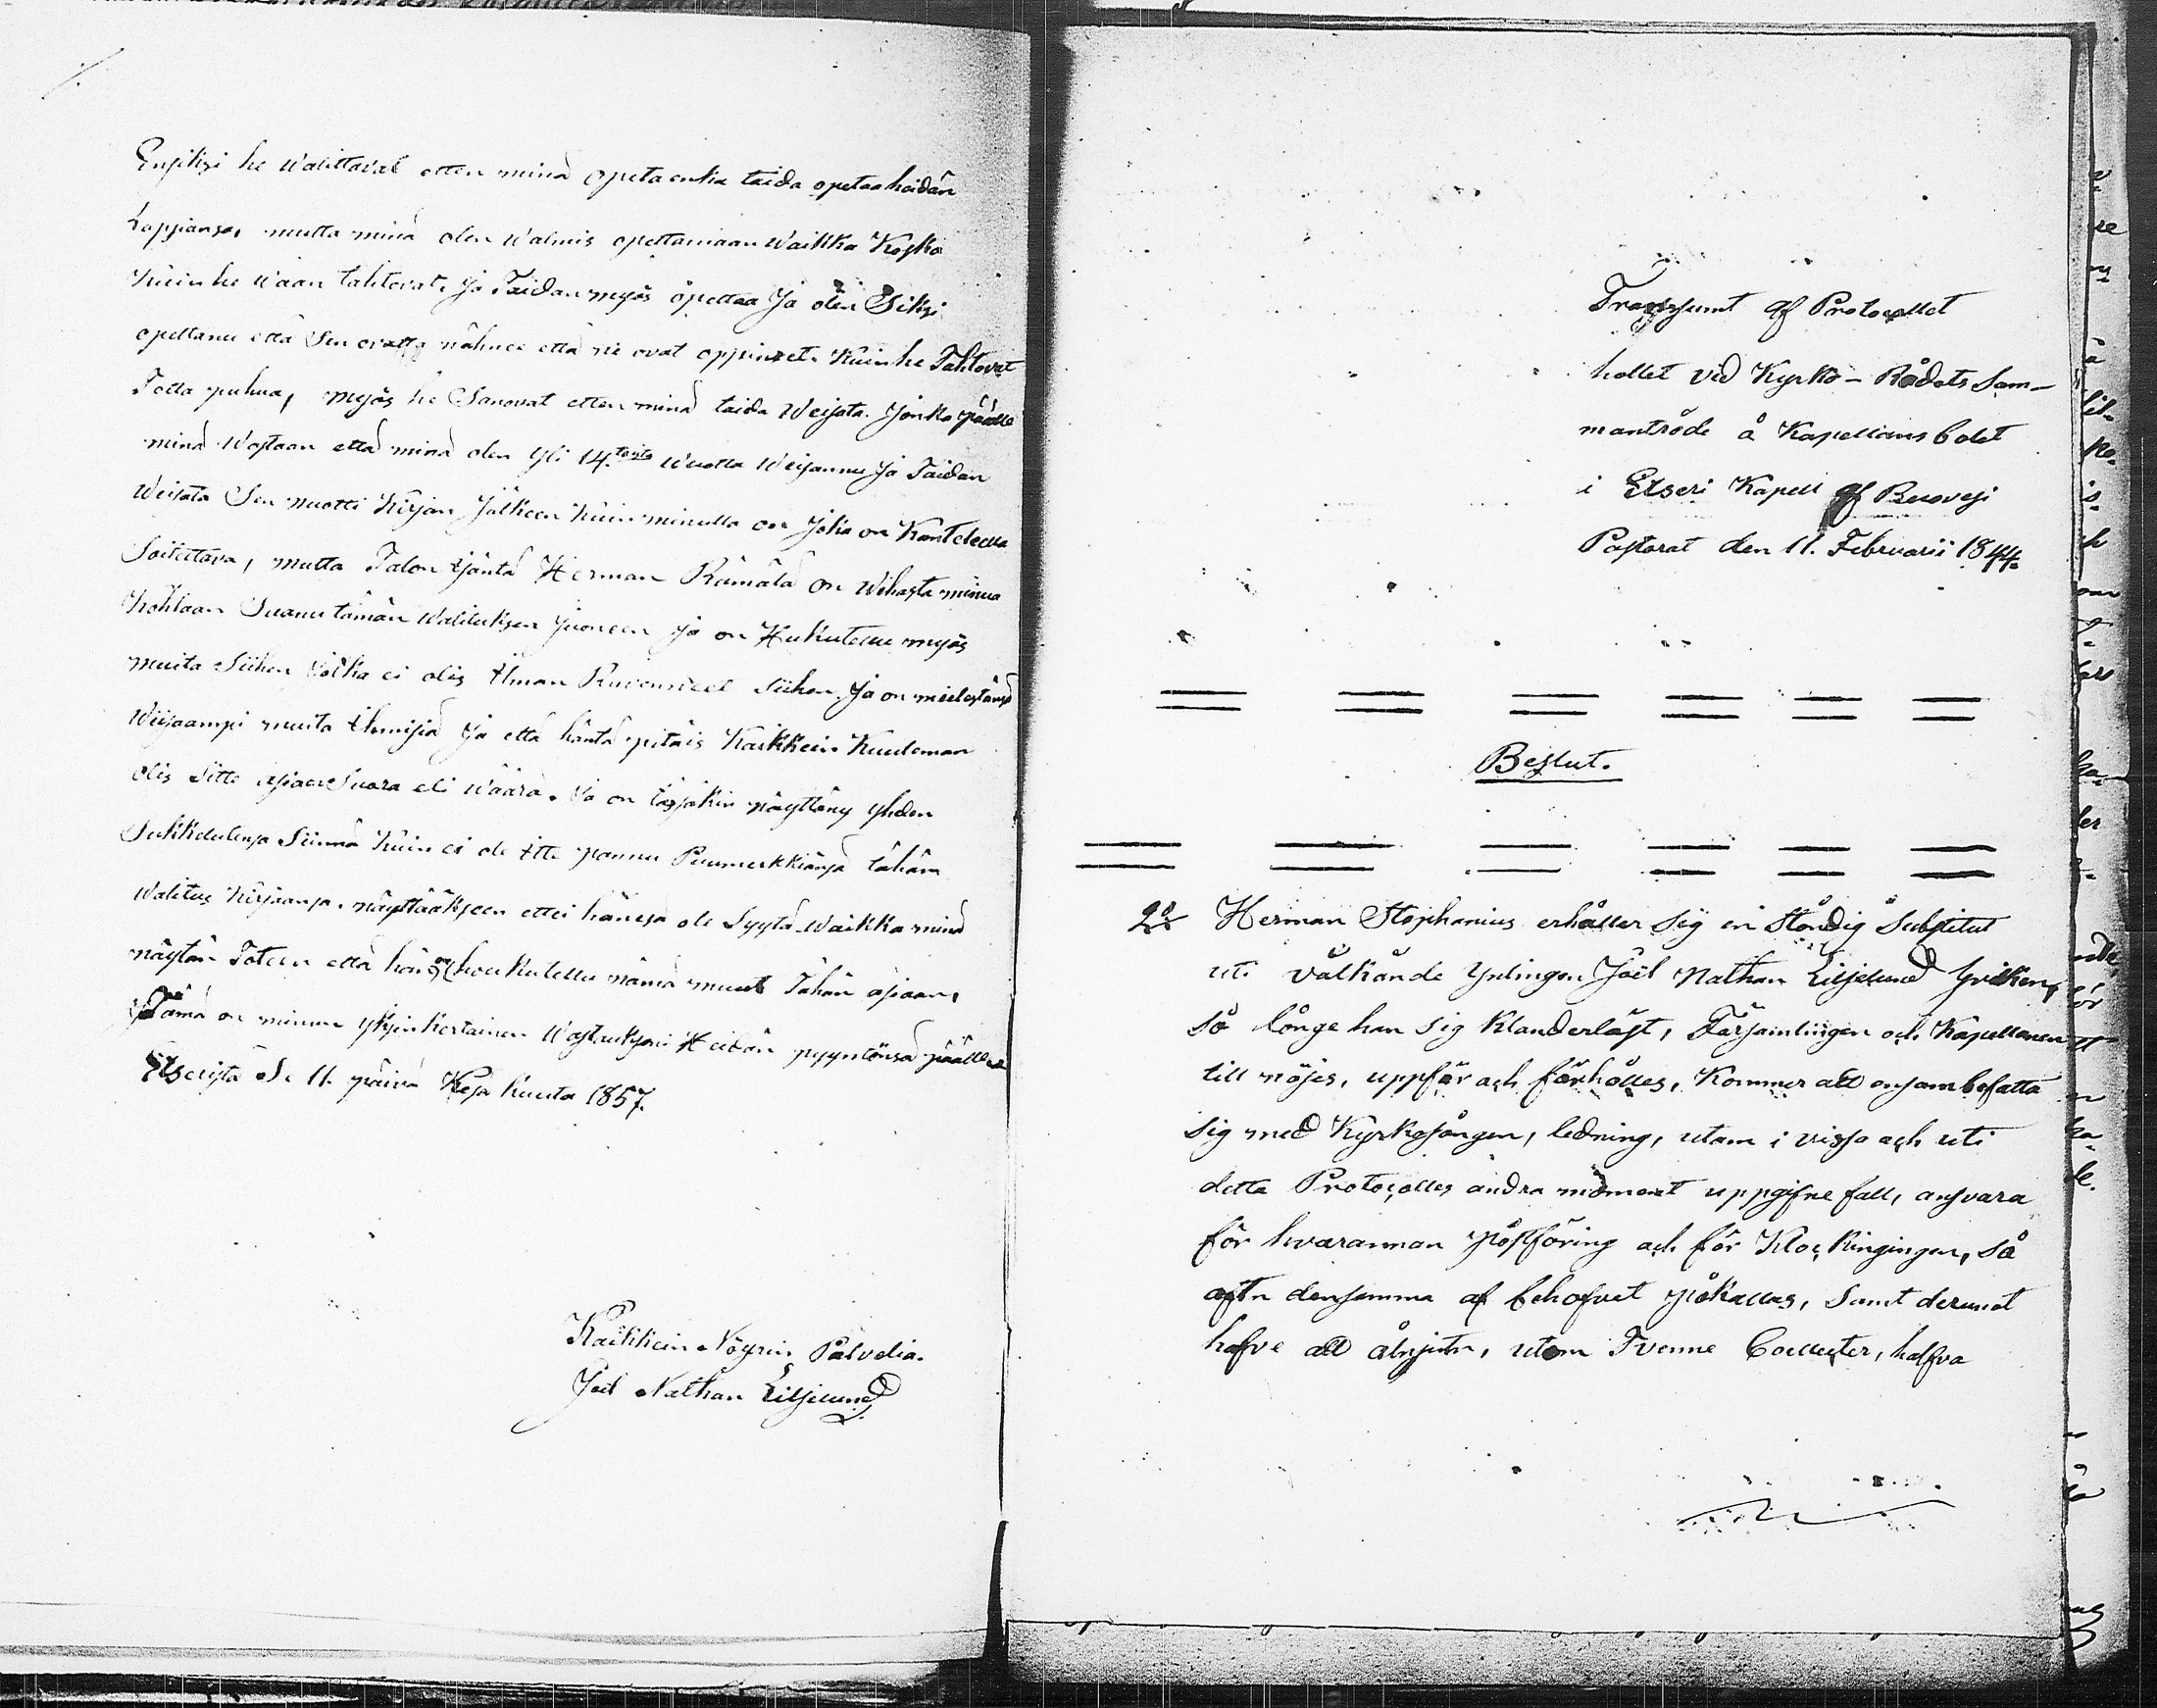 Ensiksi he walittavat etten minä opeta enkä taida opetaa heidän
Lapsiansa, mutta minä olen Walmis opettamaan Waikka Koska
kuin he waan tahtovat, ja Taidan myös opettaa ja olen Siksi
opettanu että Sen ovatta nähnee että ne ovat oppineet. kuin he Tahtovat
Totta puhua, myös he Sanovat etten minä taida Weisata. Jonka päälle
minä Wastaan että minä olen yli 14.toista wuotta Weisannu ja Taidan
Weisata Sen nuotti kirjan jälkeen kuin minulla on joka on Kantelella
Soitettava, mutta Talon isäntä Herman Rämälä on Wihasta minua
Kohtaan Suanu tämän Walituksen juoneen ja on Hukutellu myös
muita siihen jotka ei olis ilman Ruvenneet siihen. ja on mielestänsä
Wiisaampi muita ihmisiä ja että häntä pitäis Kaikkein Kuuleman
olis Sitte asiaa Suora eli wäärä. ja on tässäkin näyttäny yhden
Sukkelutensa Siinnä kuin ei ole itte pannu Puumerkkiänsä tähän
Walitus kirjaansa. näyttääkseen ettei hänesä ole Syytä Waikka minä
näytän Toteen että hän on houkutellu nämä muut Tähän asiaan,
Tämä on minun yksinkertainen Wastaukseni Heidän pyyntönsä päälle
Etseristä Se 11. päivä Kesä kuuta 1857.
Kaikkein Nöyrin Palvelia.
Joel Nathan Liljelund
Transsumt af Protocollet
hållet vid Kyrko-Rådets Sam-
manträde å Kapellansbolet
i Etseri Kapell af Ruovesi
Pastorat den 11. Februarii 1844.
Beslut.
2o Herman Stephanius erhåller sig en Ständig Substitut
uti välkände Ynlingen Joël Nathan Liljelund hvilken,
så länge han sig klanderlöst, Församlingen och Kapellanen
till nöjes, uppför och förhålles, Kommer att ensam befatta
sig med Kyrkosången, ledning, utam i vissa och uti
detta Protocolles andra moment uppgifne fall, ansvara
för hvarannan postföring och för Klockringingen, så
ofta densamma af behofvet påkallas, Samt deremot
hafve att åtnjuta, utom Tvenne Collecter, halfva